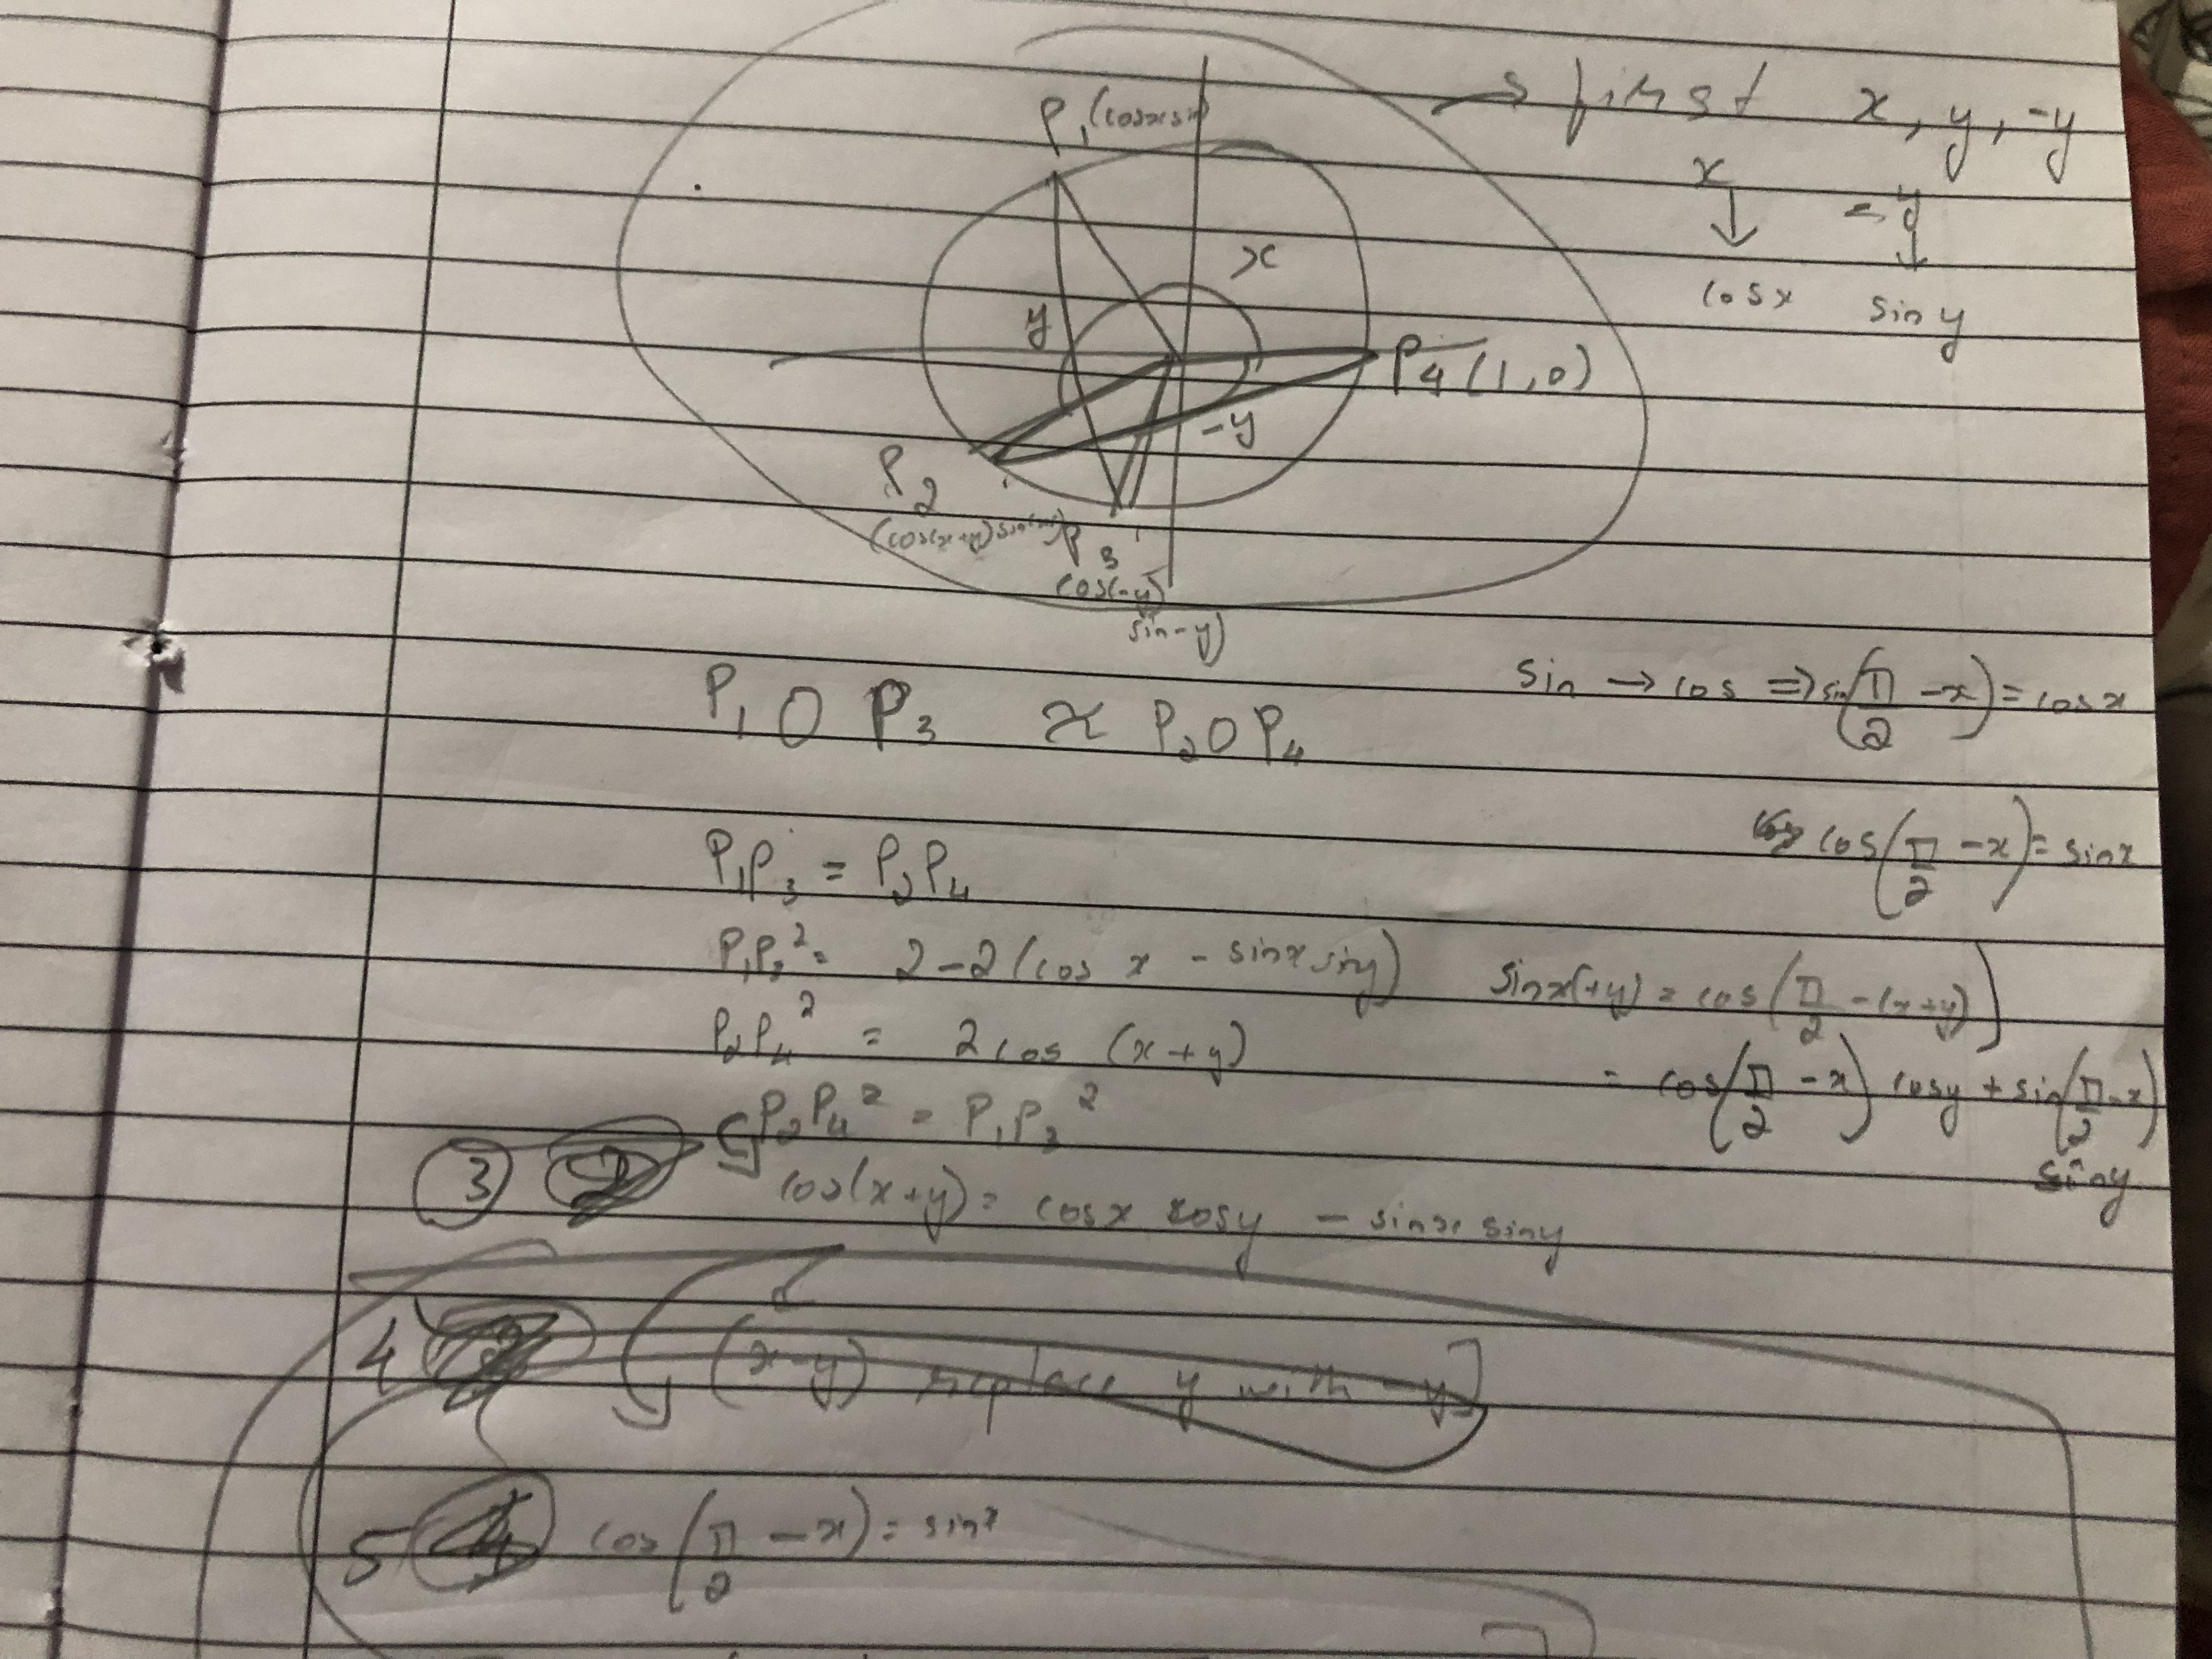 → first x, y, -y
x = y
↓ ↓
cos x sin y
P1 (cosx sin
x
y
P4 (1,0)
-y
P2
(cos(x+y) sin(x+y)
P3
cos(-y)
sin -y)
P1 O P3 ≈ P2 O P4
sin → cos ⇒ sin(π/2 - x) = cos x
P1P3 = P2P4
cos(π/2 - x) = sin x
P1P3² = 2 - 2(cos x - sin x sin y)
sin x(+y) = cos(π/2 - (x+y))
P2P4² = 2 cos (x + y)
= cos(π/2 - x) cos y + sin(π/2 - x)
sin y
P2P4² = P1P3²
3)
cos(x+y) = cos x cos y - sin x sin y
4)
(x-y) replace y with -y
5
cos(π/2 - x) = sin x